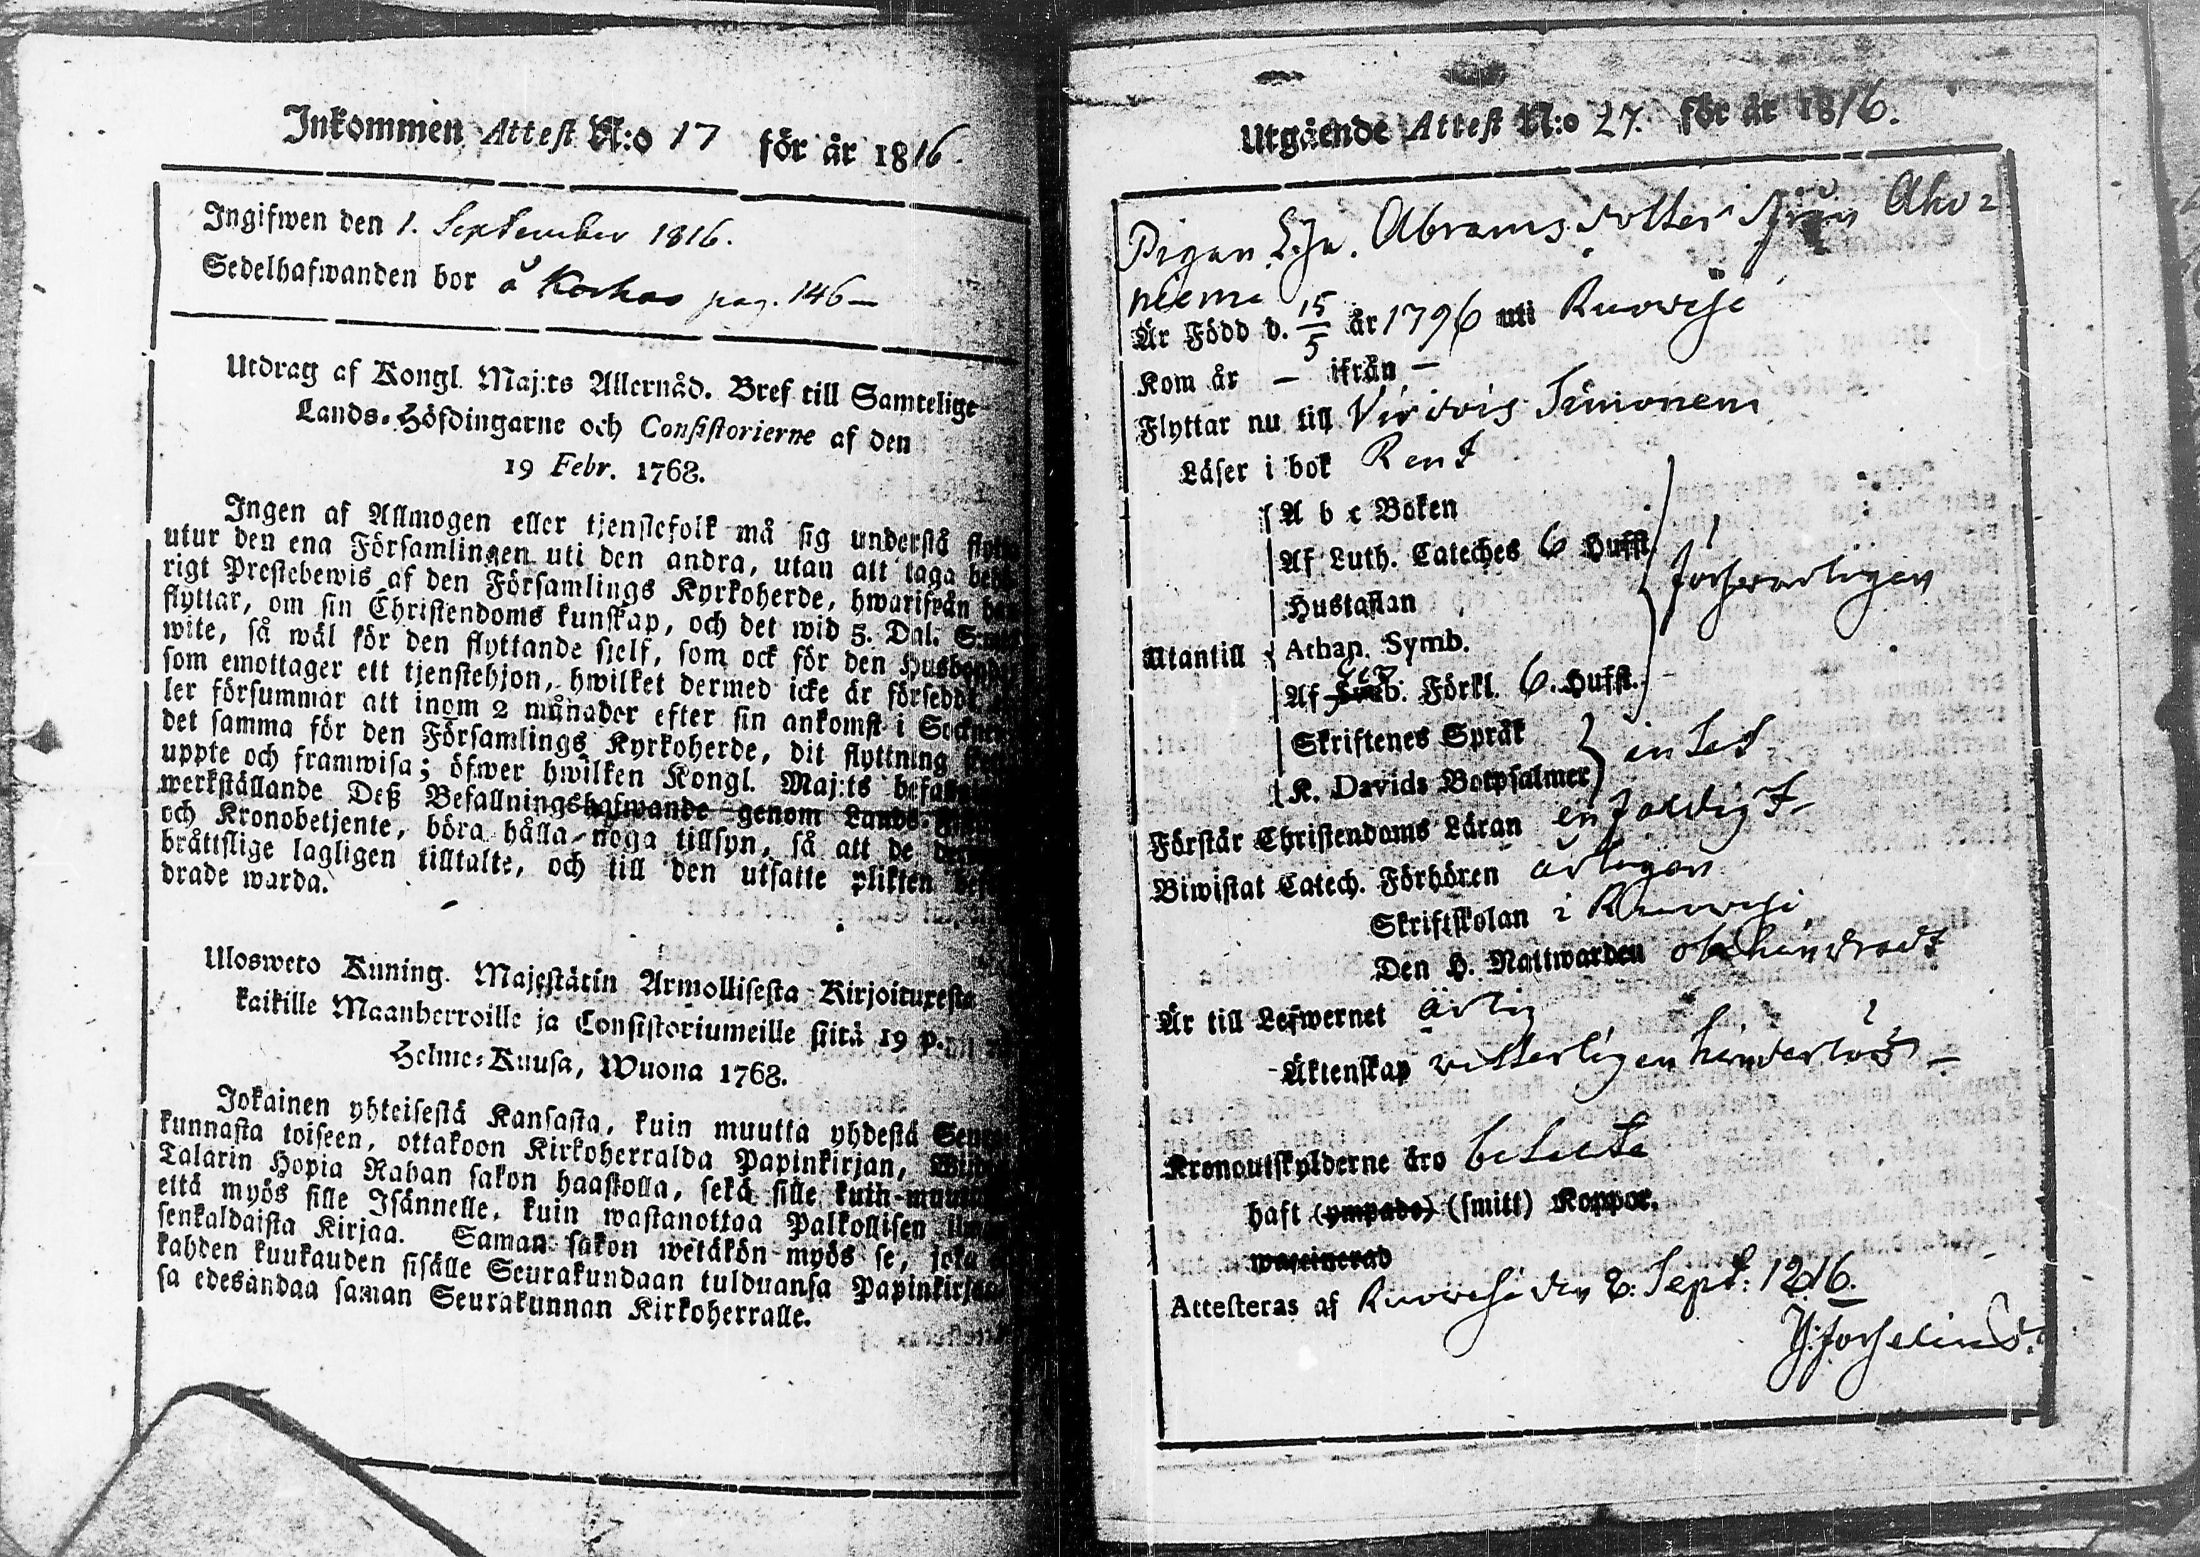 Inkommen Attest N:o 17 för år 1816.
Ingifwen den 1. September 1816.
Sedelhafwanden bor å Korhos pag. 146 —
Utdrag af Kongl. Maj:ts Allernåd. Bref till Samtelige
Lands-Höfdingarne och Consistorierne af den
19 Febr. 1768.
Ingen af Allmogen eller tjenstefolk må sig understå flytta
utur den ena Församlingen uti den andra, utan att taga behö-
rigt Prestebewis af den Församlings Kyrkoherde, hwarifrån han
flyttar, om sin Christendoms kunskap, och det wid 5. Dal. S:mt
wite, så wäl för den flyttande sjelf, som ock för den Husbonde
som emottager ett tjenstehjon, hwilket dermed icke är försedd
ler försummar att inom 2 månader efter sin ankomst i Socknen
det samma för den Församlings Kyrkoherde, dit flyttning
uppte och framwisa; öfwer hwilken Kongl. Maj:ts befallning
werkställande Deß Befallningshafwande genom Lands-
och Kronobetjente, böra hålla noga tillsyn, så att de
bråttslige lagligen tilltalte, och till den utsatte plikten
drade warda.
Ulosweto Kuning. Majestätin Armollisesta Kirjoituxesta
kaikille Maanherroille ja Consistoriumeille siitä 19 p.
Helme-Kuusa, Wuona 1768.
Jokainen yhteisestä Kansasta, kuin muutta yhdestä Seura-
kunnasta toiseen, ottakoon Kirkoherralda Papinkirjan, Wijden
Talarin Hopia Rahan sakon haastolla, sekä sille kuin muutta
että myös sille Isännelle, kuin wastanottaa Palkollisen ilman
senkaldaista Kirjaa. Saman sakon wetäkön myös se, joka ei
kahden kuukauden sisälle Seurakundaan tulduansa Papinkirjaa-
sa edesandaa saman Seurakunnan Kirkoherralle.
Utgående Attest N:o 27. för år 1816.
Pigan Lisa Abrams dotter från Ahv=
niemi
Är Född d. 15/5 år 1796 uti Ruovesi
Kom år — ifrån —
Flyttar nu till Virdois Simonem
Läser i bok Rent
A b c Boken
Af Luth. Cateches 6 Hufst.
Hustaflan
försvarligen
Utantill Athan. Symb.
Af Symb. Förkl. 6. Hufst.
Skriftenes Språk
intet
K. Davids Botpsalmer
Förstår Christendoms Läran enfaldigt
Biwistat Catech. Förhören årligen
Skriftskolan i Ruovesi
Den H. Nattwarden obehindradt
Är till Lefwernet ärlig
Äktenskap vetterligen hinderlös —
Kronoutskylderne äro betalta
haft (ympade) (smitt) Koppor.
waccinerad
Attesteras af Ruovesi den 8. Sept: 1816.